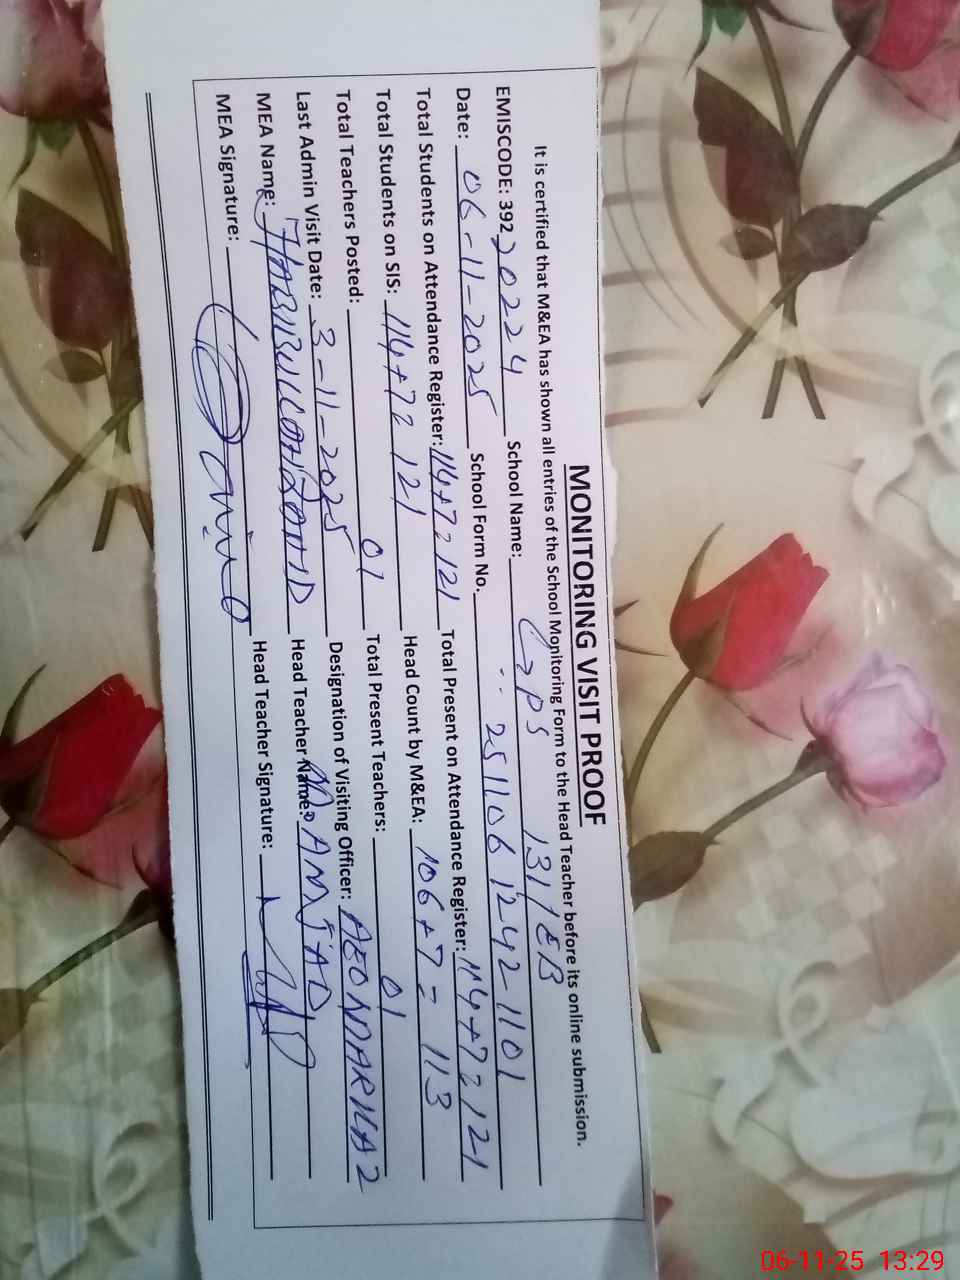 MONITORING VISIT PROOF
It is certified that M&EA has shown all entries of the School Monitoring Form to the Head Teacher before its online submission.
EMISCODE: 39220224 School Name: GPS 131/EB
Date: 06-11-2025 School Form No. 251106 1242-1101
Total Students on Attendance Register: 114+7=121 Total Present on Attendance Register: 114+7=121
Total Students on SIS: 114+7=121 Head Count by M&EA: 106+7=113
Total Teachers Posted: 01 Total Present Teachers: 01
Last Admin Visit Date: 3-11-2025 Designation of Visiting Officer: AEO
MEA Name: Head Teacher Name: AMJAD
MEA Signature: Head Teacher Signature:
06-11-25 13:29